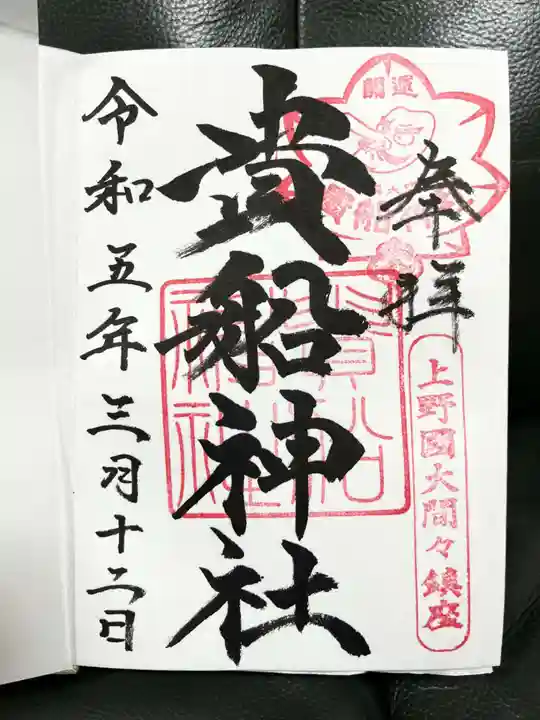 奉拝
上野國大間々鎮座
開運
貴船神社
貴船神社
令和五年三月十二日